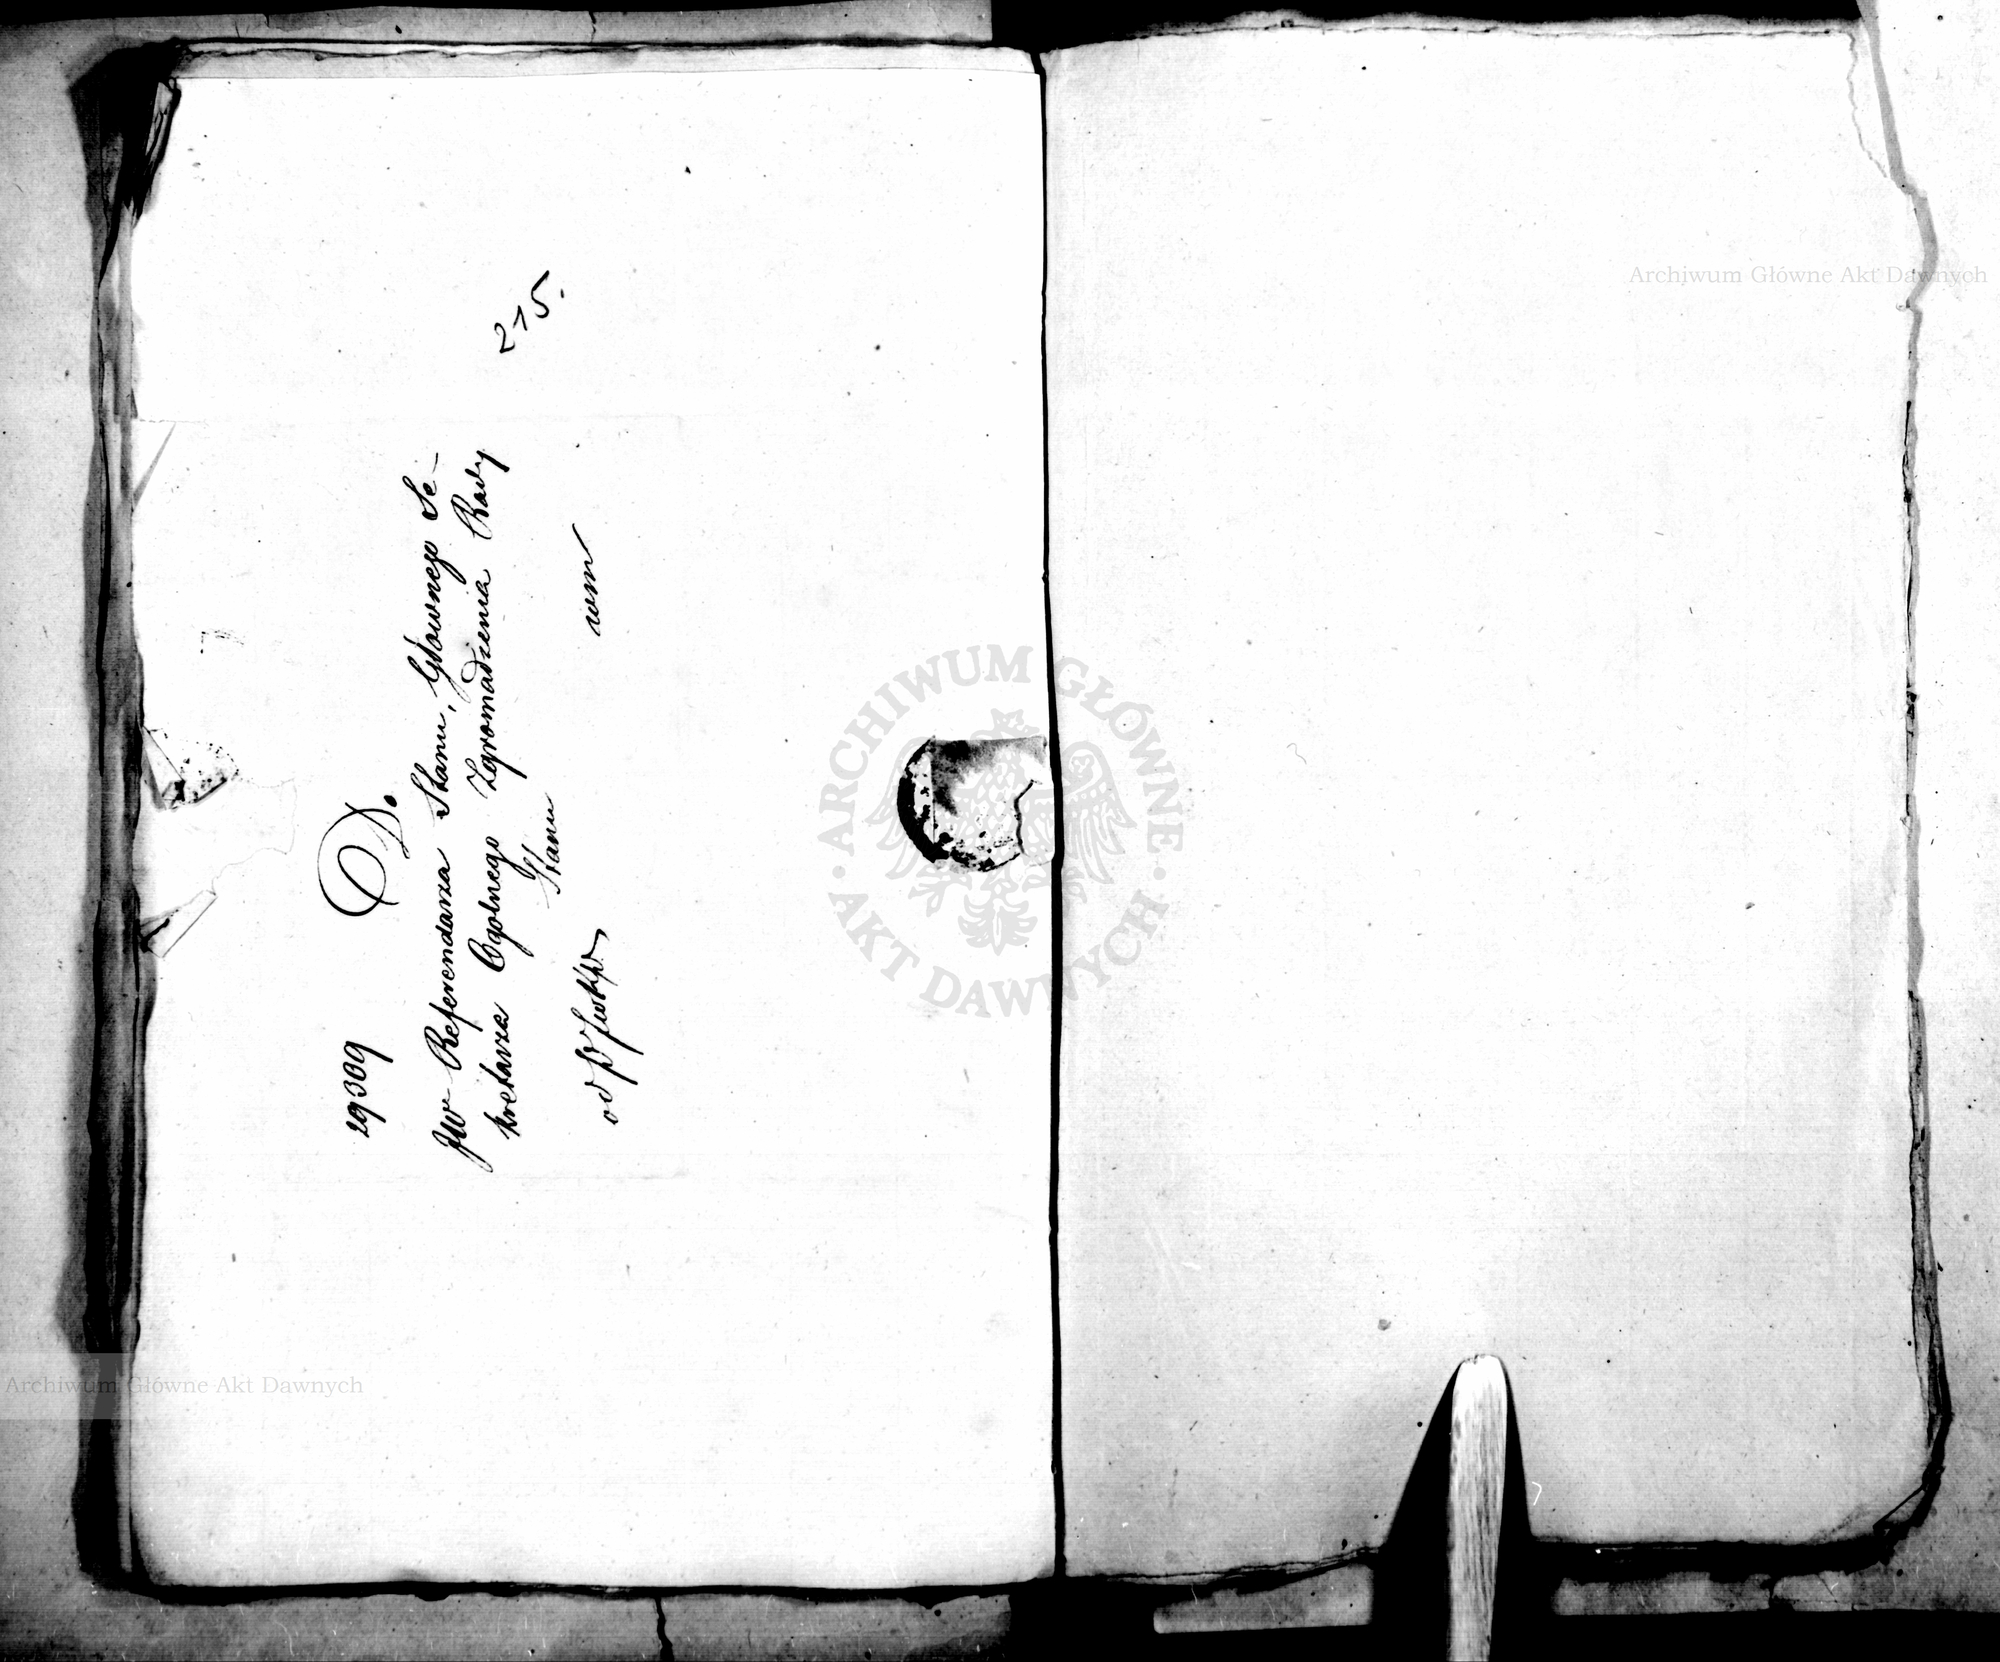 215.
29309
Do.
JW Referendarza Stanu, Głownego Se-
kretarza Ogolnego Zgromadzenia Rady
Stanu
od
ARCHIWUM GŁÓWNE AKT DAWNYCH
Archiwum Główne Akt Dawnych
Archiwum Główne Akt Dawnych